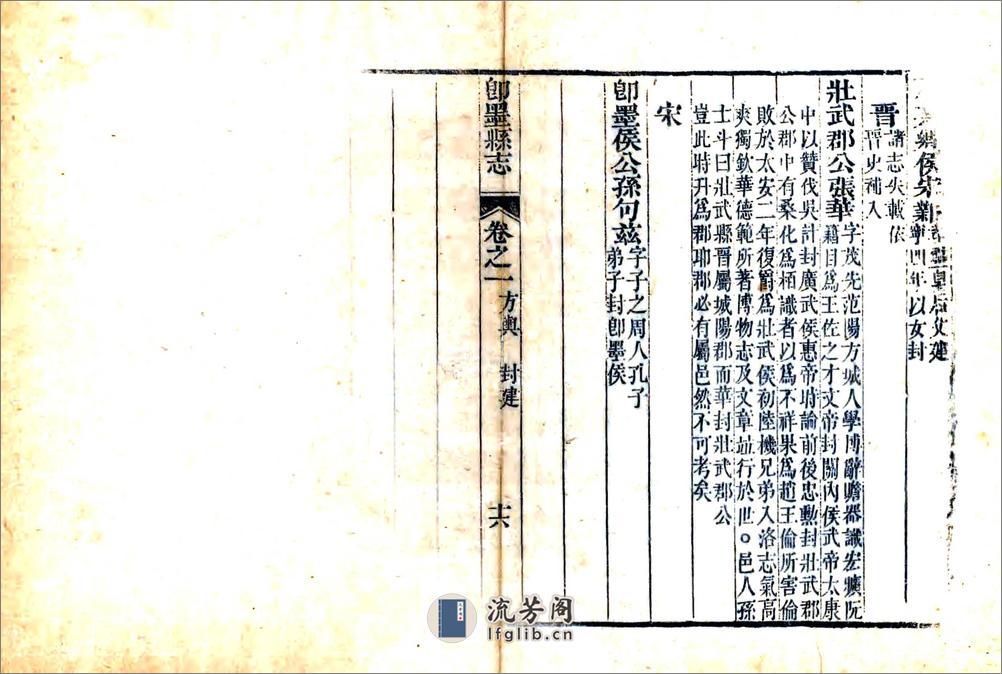 鄉侯宋
皇后父建
寧四年以女封
晉
諸志失載依
晉史補入
壯武郡公張華
字茂先范陽方城人學博辭贍器識宏曠阮
籍目爲王佐之才文帝封關內侯武帝太康
中以贊伐吳計封廣武侯惠帝時論前後忠勳封壯武郡
公郡中有桑化爲栢識者以爲不祥果爲趙王倫所害倫
敗於太安二年復爵爲壯武侯初陸機兄弟入洛志氣高
爽獨欽華德範所著博物志及文章並行於世○邑人孫
士斗曰壯武縣晉屬城陽郡而華封壯武郡公
豈此時升爲郡耶郡必有屬邑然不可考矣
宋
卽墨侯公孫句茲
字子之周人孔子
弟子封卽墨侯
卽墨縣志 卷之一 方輿 封建 十六
流芳阁
lfglib.cn